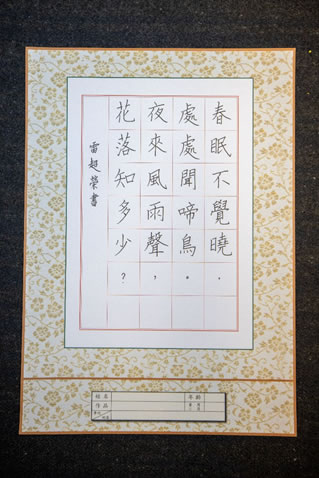 春眠不覺曉，
處處聞啼鳥。
夜來風雨聲，
花落知多少？
雷超榮書
姓名
作品
年齡